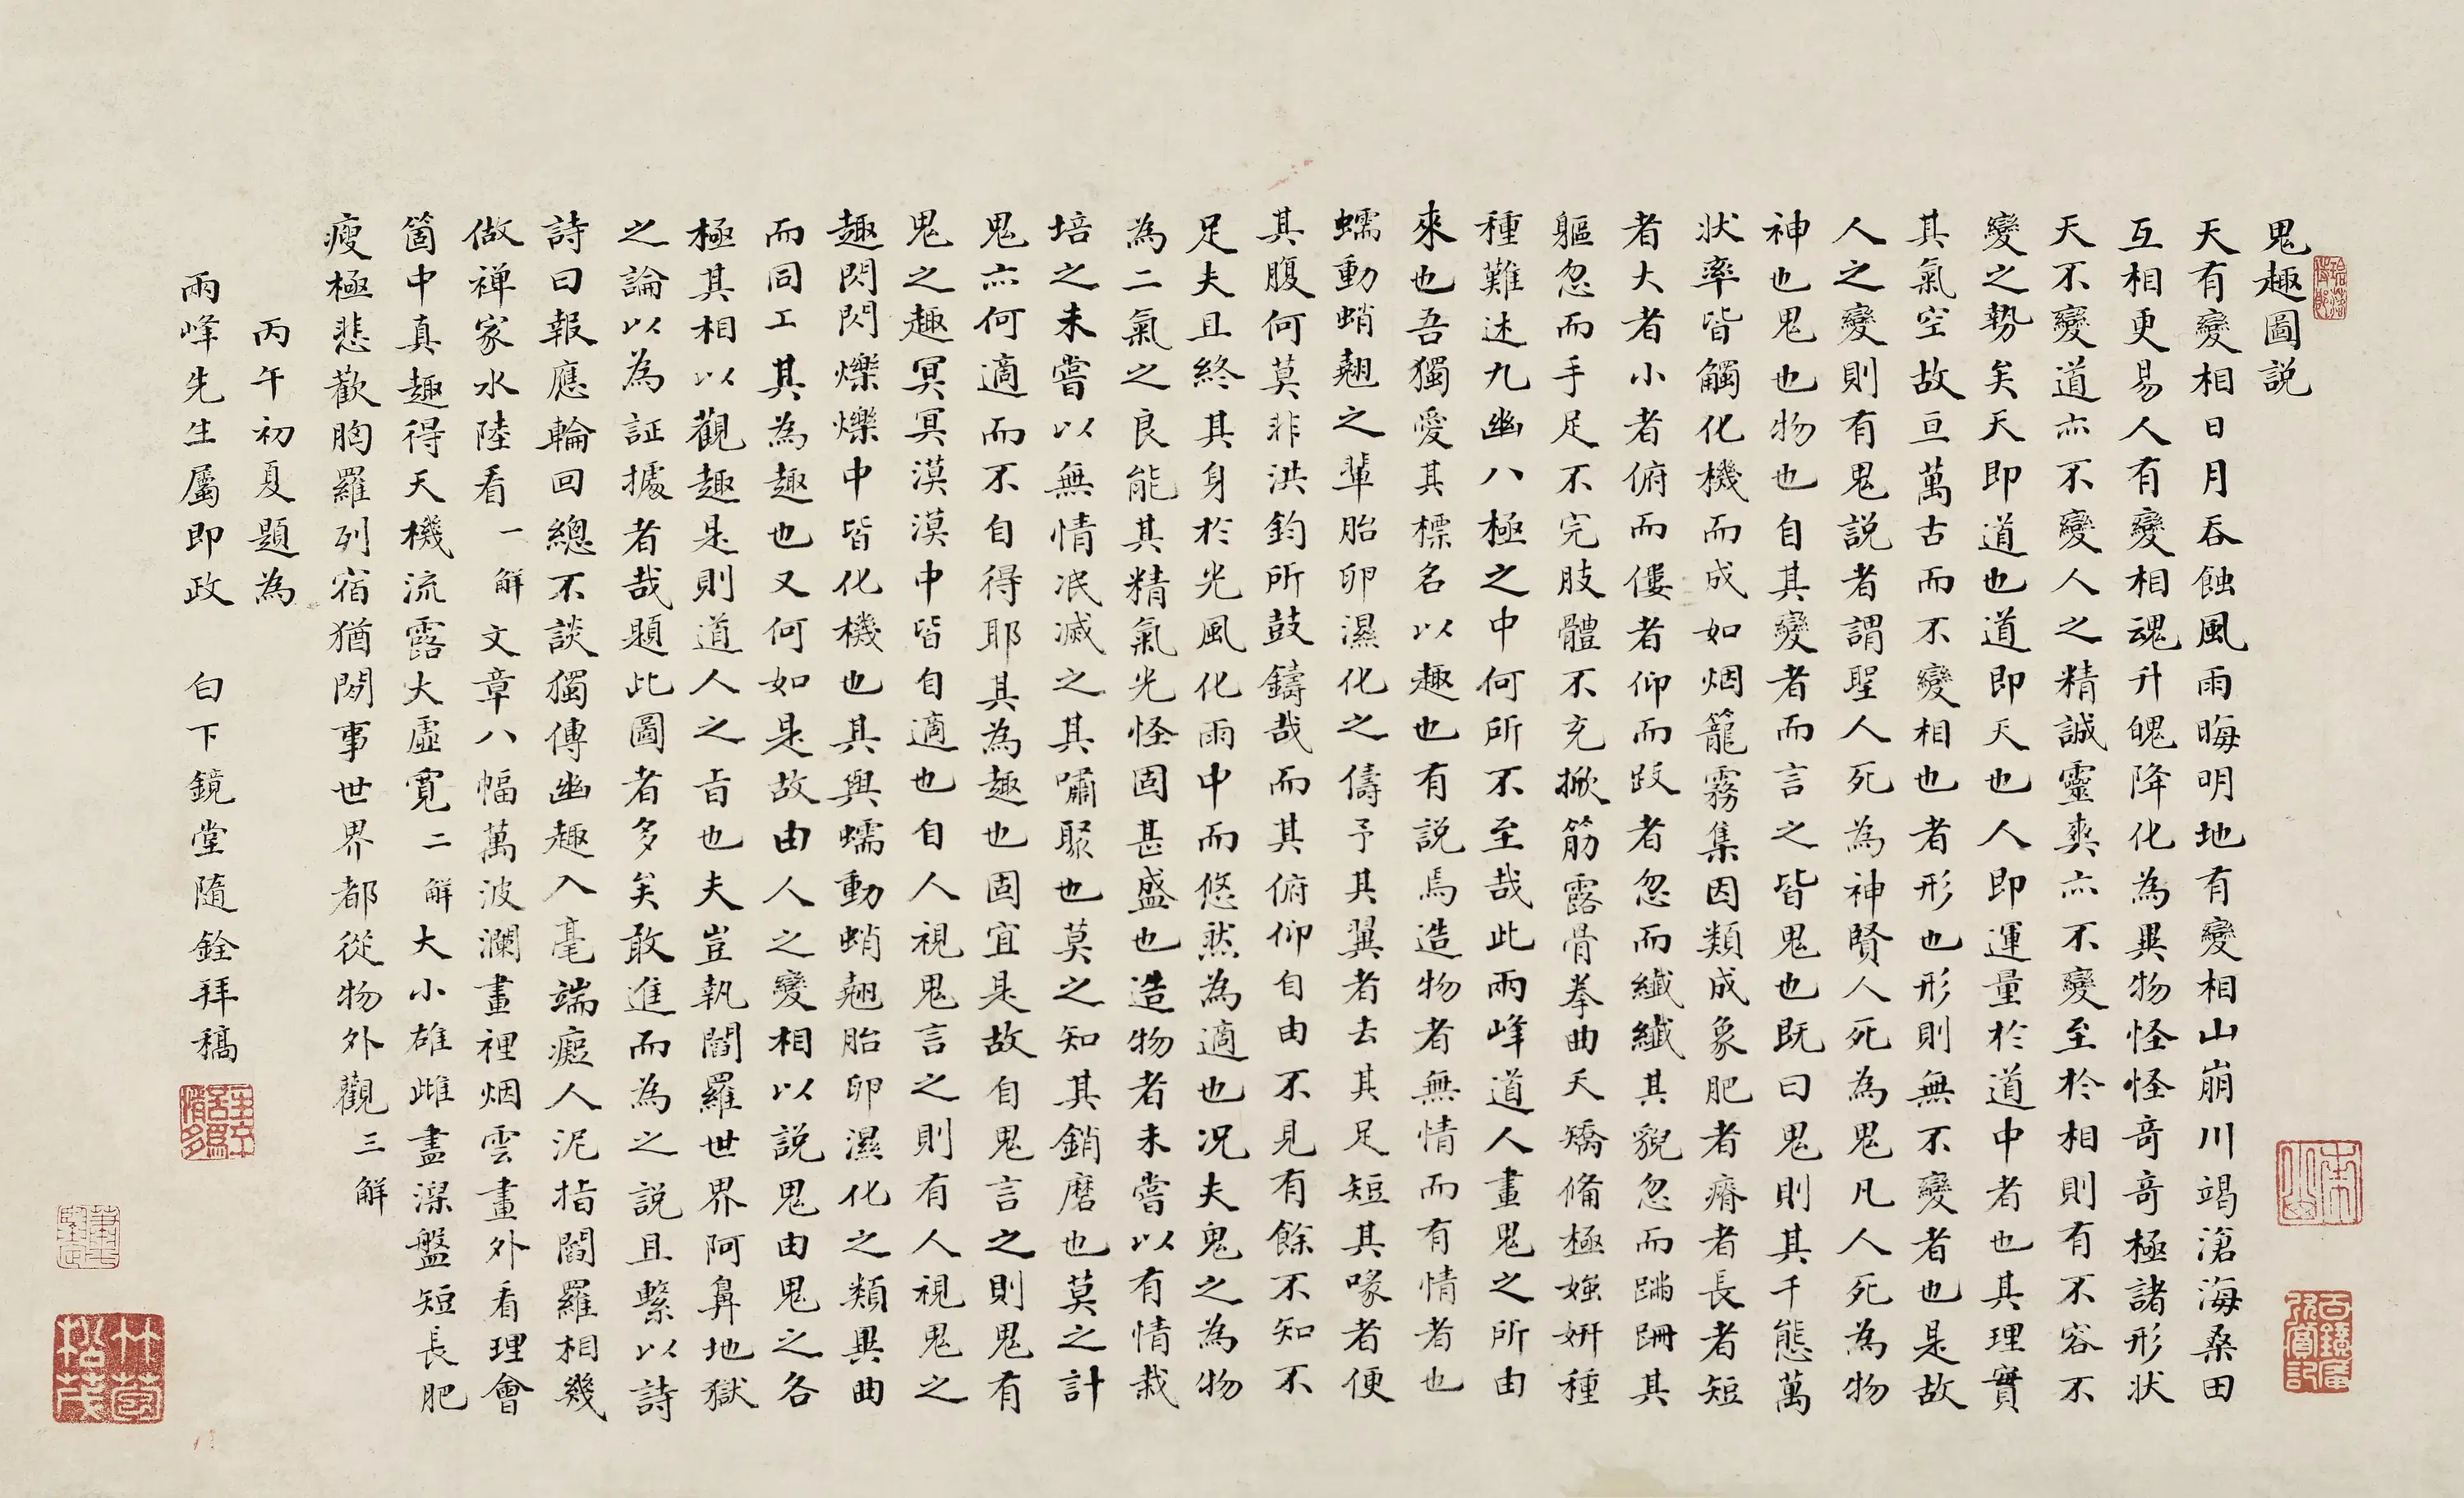 鬼趣圖説
天有變相日月吞蝕風雨晦明地有變相山崩川竭滄海桑田
互相更易人有變相魂升魄降化為異物怪怪竒竒極諸形状
天不變道亦不變人之精誠靈爽亦不變至於相則有不容不
變之勢矣天即道也道即天也人即運量於道中者也其理實
其氣空故亘萬古而不變相也者形也形則無不變者也是故
人之變則有鬼説者謂聖人死為神賢人死為鬼凡人死為物
神也鬼也物也自其變者而言之皆鬼也既曰鬼則其千態萬
状率皆觸化機而成如烟籠霧集因類成象肥者瘠者長者短
者大者小者俯而僂者仰而跂者忽而纖纖其貌忽而蹣跚其
軀忽而手足不完肢體不充掀筋露骨拳曲夭矯備極媸妍種
種難述九幽八極之中何所不至哉此兩峰道人畫鬼之所由
來也吾獨愛其標名以趣也有説焉造物者無情而有情者也
蠕動蛸翹之輩胎卵濕化之儔予其翼者去其足短其喙者便
其腹何莫非洪鈞所鼓鑄哉而其俯仰自由不見有餘不知不
足夫且終其身於光風化雨中而悠然為適也况夫鬼之為物
為二氣之良能其精氣光怪固甚盛也造物者未嘗以有情栽
培之未嘗以無情泯滅之其嘯聚也莫之知其銷磨也莫之計
鬼亦何適而不自得耶其為趣也固宜是故自鬼言之則鬼有
鬼之趣冥冥漠漠中皆自適也自人視鬼言之則有人視鬼之
趣閃閃爍爍中皆化機也其與蠕動蛸翹胎卵濕化之類異曲
而同工其為趣也又何如是故由人之變相以説鬼由鬼之各
極其相以觀趣是則道人之旨也夫豈執閻羅世界阿鼻地獄
之論以為証據者哉題此圖者多矣敢進而為之説且繫以詩
詩曰報應輪回總不談獨傳幽趣入毫端癡人泥指閻羅相幾
做禅家水陸看一解文章八幅萬波瀾畫裡烟雲畫外看理會
箇中真趣得天機流露大虛寬二解大小雄雌盡湥盤短長肥
瘦極悲歡胸羅列宿猶閒事世界都從物外觀三解
丙午初夏題為
兩峰先生屬即政 白下鏡堂隨銓拜稿
竹苞松茂